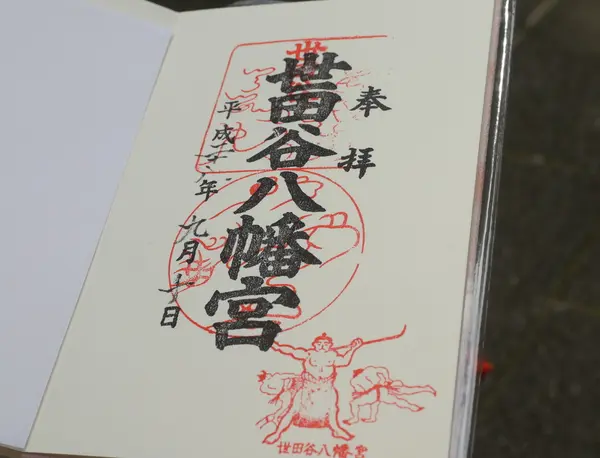 奉拝
世田谷八幡宮
平成 年 九月 日
世田谷八幡宮